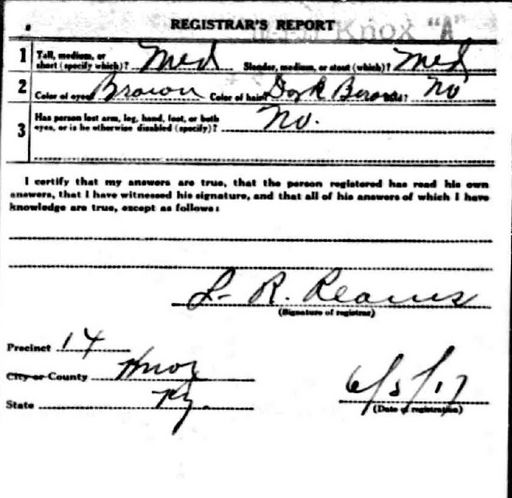 REGISTRAR'S REPORT
Knox "A"
1 Tall, medium, or short (specify which)? Med Slender, medium, or stout (which)? Med
2 Color of eyes? Brown Color of hair? Dark Brown Bald? No
3 Has person lost arm, leg, hand, foot, or both
eyes, or is he otherwise disabled (specify)? No.
I certify that my answers are true, that the person registered has read his own
answers, that I have witnessed his signature, and that all of his answers of which I have
knowledge are true, except as follows:
L- R. Reams
(Signature of registrar)
Precinct 14
City or County Knox
State Ky.
6/5/17
(Date of registration)